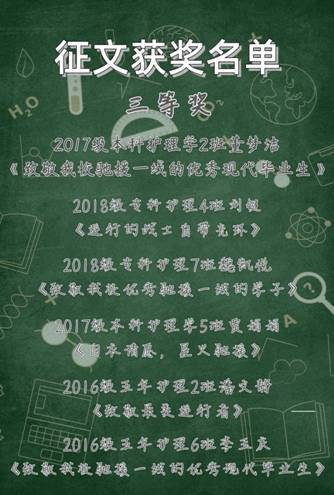 征文获奖名单
三等奖
2017级本科护理学2班童梦洁
《致敬我校驰援一线的优秀现代毕业生》
2018级专科护理4班刘钽
《逆行的战士自带光环》
2018级专科护理7班魏凯悦
《致敬我校优秀驰援一线的学子》
2017级本科护理学5班贾娟娟
《草木情愿，星义驰援》
2016级五年护理2班潘文婧
《致敬最美逆行者》
2016级五年护理6班李玉庆
《致敬我校驰援一线的优秀现代毕业生》
H₂O
A